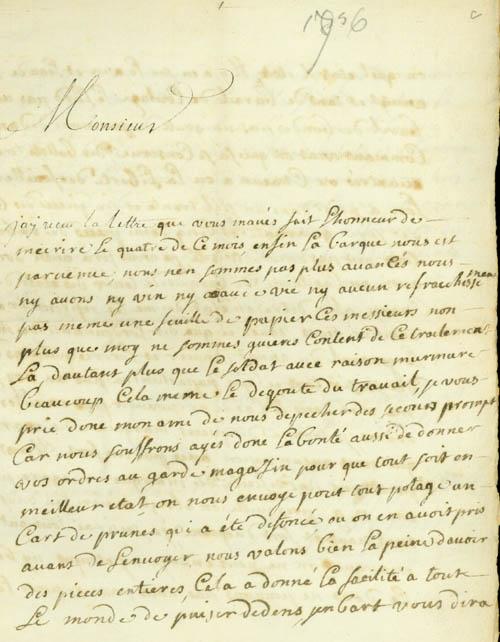 1756
Monsieur
jay recu la lettre que vous mavés fait lhonneur de
mecrire le quatre de ce mois, enfin la barque nous est
parvenue, nous nen sommes pas plus avancés nous
ny avons ny vin ny eau de vie ny aucun refraechissemen
pas meme une feuille de papier Ces messieurs non
plus que moy ne sommes guiere Content de Ce traitement
La, dautant plus que le soldat avec raison murmure
beaucoup Cela meme le degoute du travail, je vous
prie donc mon ami de nous depecher des secours prompt
Car nous souffrons ayés donc la bonté aussi de donner
vos ordres au garde magazin pour que tout soit en
meilleur etat on nous envoye pour tout potage un
Cart de prunes qui a été defoncé ou on en avoit pris
avant de Lenvoyer, nous valons bien la peine davoir
des pieces entieres, Cela a donné la facilité a tout
Le monde de puiser dedens, jenbart vous dira